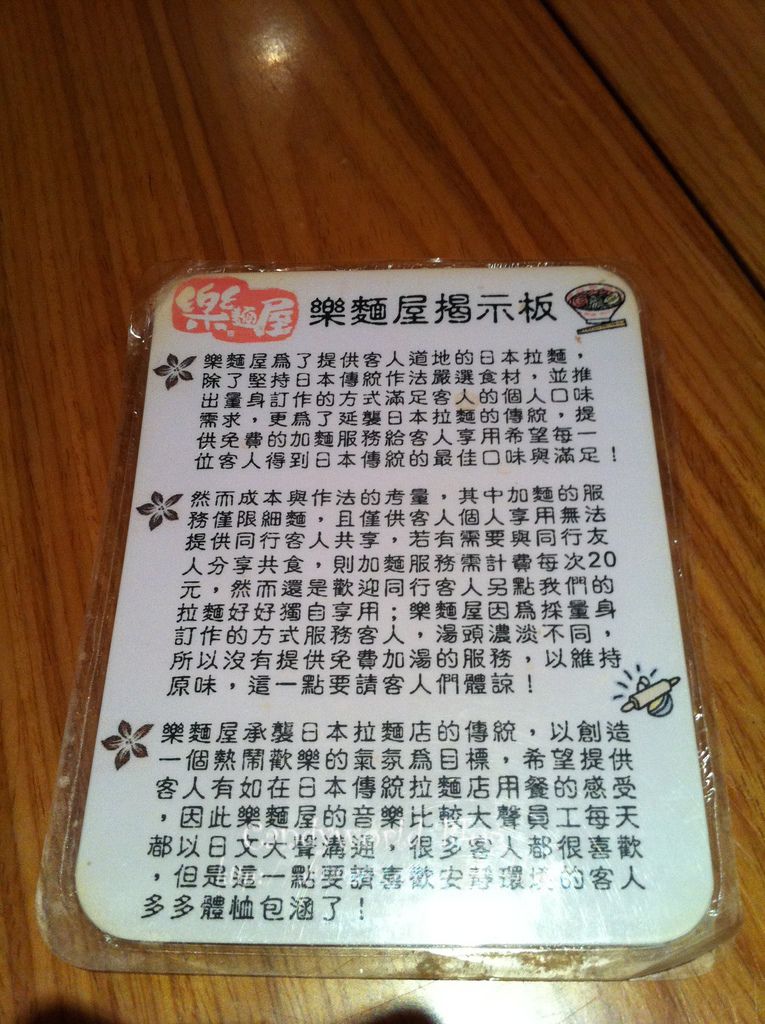 樂麵屋
樂麵屋揭示板
樂麵屋為了提供客人道地的日本拉麵，
除了堅持日本傳統作法嚴選食材，並推
出量身訂作的方式滿足客人的個人口味
需求，更為了延襲日本拉麵的傳統，提
供免費的加麵服務給客人享用希望每一
位客人得到日本傳統的最佳口味與滿足！
然而成本與作法的考量，其中加麵的服
務僅限細麵，且僅供客人個人享用無法
提供同行客人共享，若有需要與同行友
人分享共食，則加麵服務需計費每次20
元，然而還是歡迎同行客人另點我們的
拉麵好好獨自享用；樂麵屋因為採量身
訂作的方式服務客人，湯頭濃淡不同，
所以沒有提供免費加湯的服務，以維持
原味，這一點要請客人們體諒！
樂麵屋承襲日本拉麵店的傳統，以創造
一個熱鬧歡樂的氣氛為目標，希望提供
客人有如在日本傳統拉麵店用餐的感受
，因此樂麵屋的音樂比較大聲員工每天
都以日文大聲溝通，很多客人都很喜歡
，但是這一點要請喜歡安靜環境的客人
多多體恤包涵了！